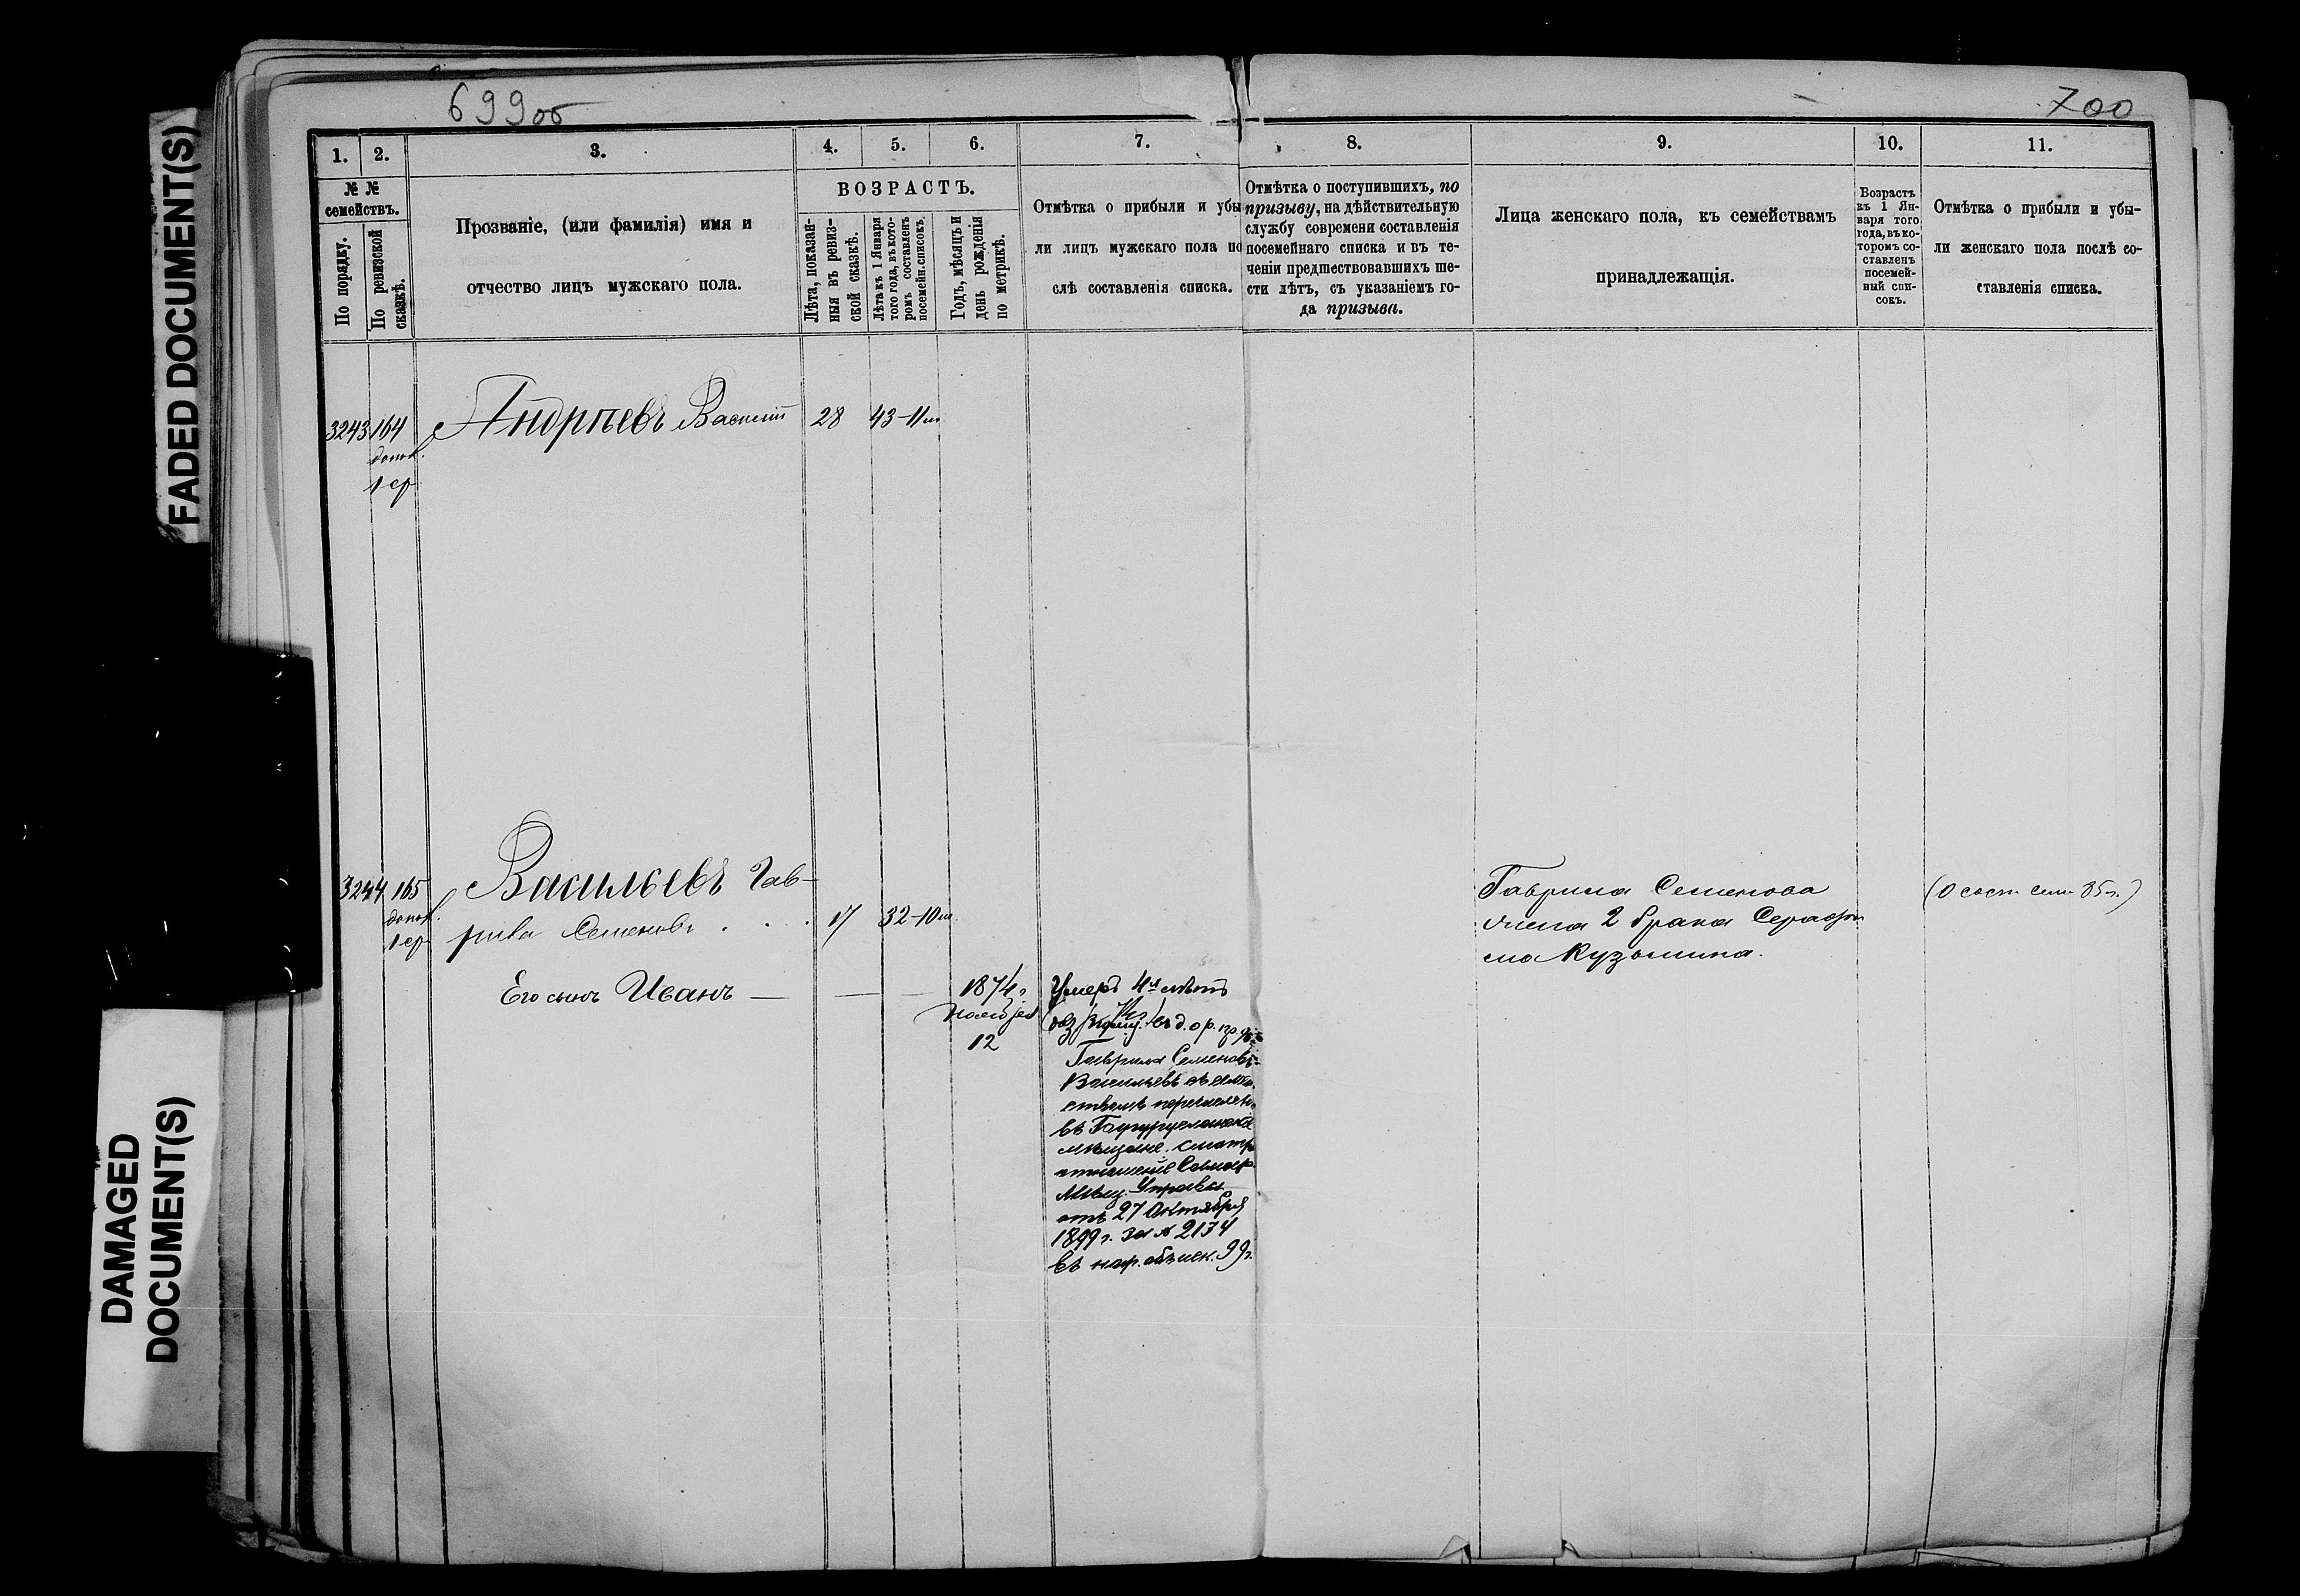 FADED DOCUMENT(S)
DAMAGED
DOCUMENT(S)
699об
700
1.
2.
3.
4.
5.
6.
7.
8.
9.
10.
11.
№ №
семействъ.
По порядку.
По ревизской
сказкѣ.
Прозваніе, (или фамилія) имя и
отчество лицъ мужскаго пола.
ВОЗРАСТЪ.
Лѣта, показан-
ныя въ ревиз-
ской сказкѣ.
Лѣта къ 1 Января
того года, въ кото-
ромъ составленъ
посемейн. списокъ.
Годъ, мѣсяцъ и
день рожденія
по метрикѣ.
Отмѣтка о прибыли и убы
ли лицъ мужскаго пола по
слѣ составленія списка.
Отмѣтка о поступившихъ, по
призыву, на дѣйствительную
службу современи составленія
посемейнаго списка и въ те-
ченіи предшествовавшихъ ше-
сти лѣтъ, съ указаніемъ го-
да призыва.
Лица женскаго пола, къ семействамъ
принадлежащія.
Возрастъ
къ 1 Ян-
варя того
года, въ ко-
торомъ со-
ставленъ
посемей-
ный спи-
сокъ.
Отмѣтка о прибыли и убы-
ли женскаго пола послѣ со-
ставленія списка.
3243
164
допол.
1 ср
Андреевъ Василій
28
43-11м
3244
165
допол.
1 ср
Васильевъ Гав-
рила Семеновъ
17
32-10м
Его сынъ Иванъ
1874г
Ноября
12
Умеръ 4х лѣтъ
Гаврила Семеновъ
Васильевъ съ семей-
ствомъ перечислен
въ Бугурусланскіе
мѣщане. Смотр
отношеніе Самар.
Мѣщ. Управы
отъ 27 Октября
1899г. за № 2174
въ нар. 99г.
Гаврила Семенова
жена 2 брака Серафи
ма Кузьмина.
(О сост. сем. 85г.)